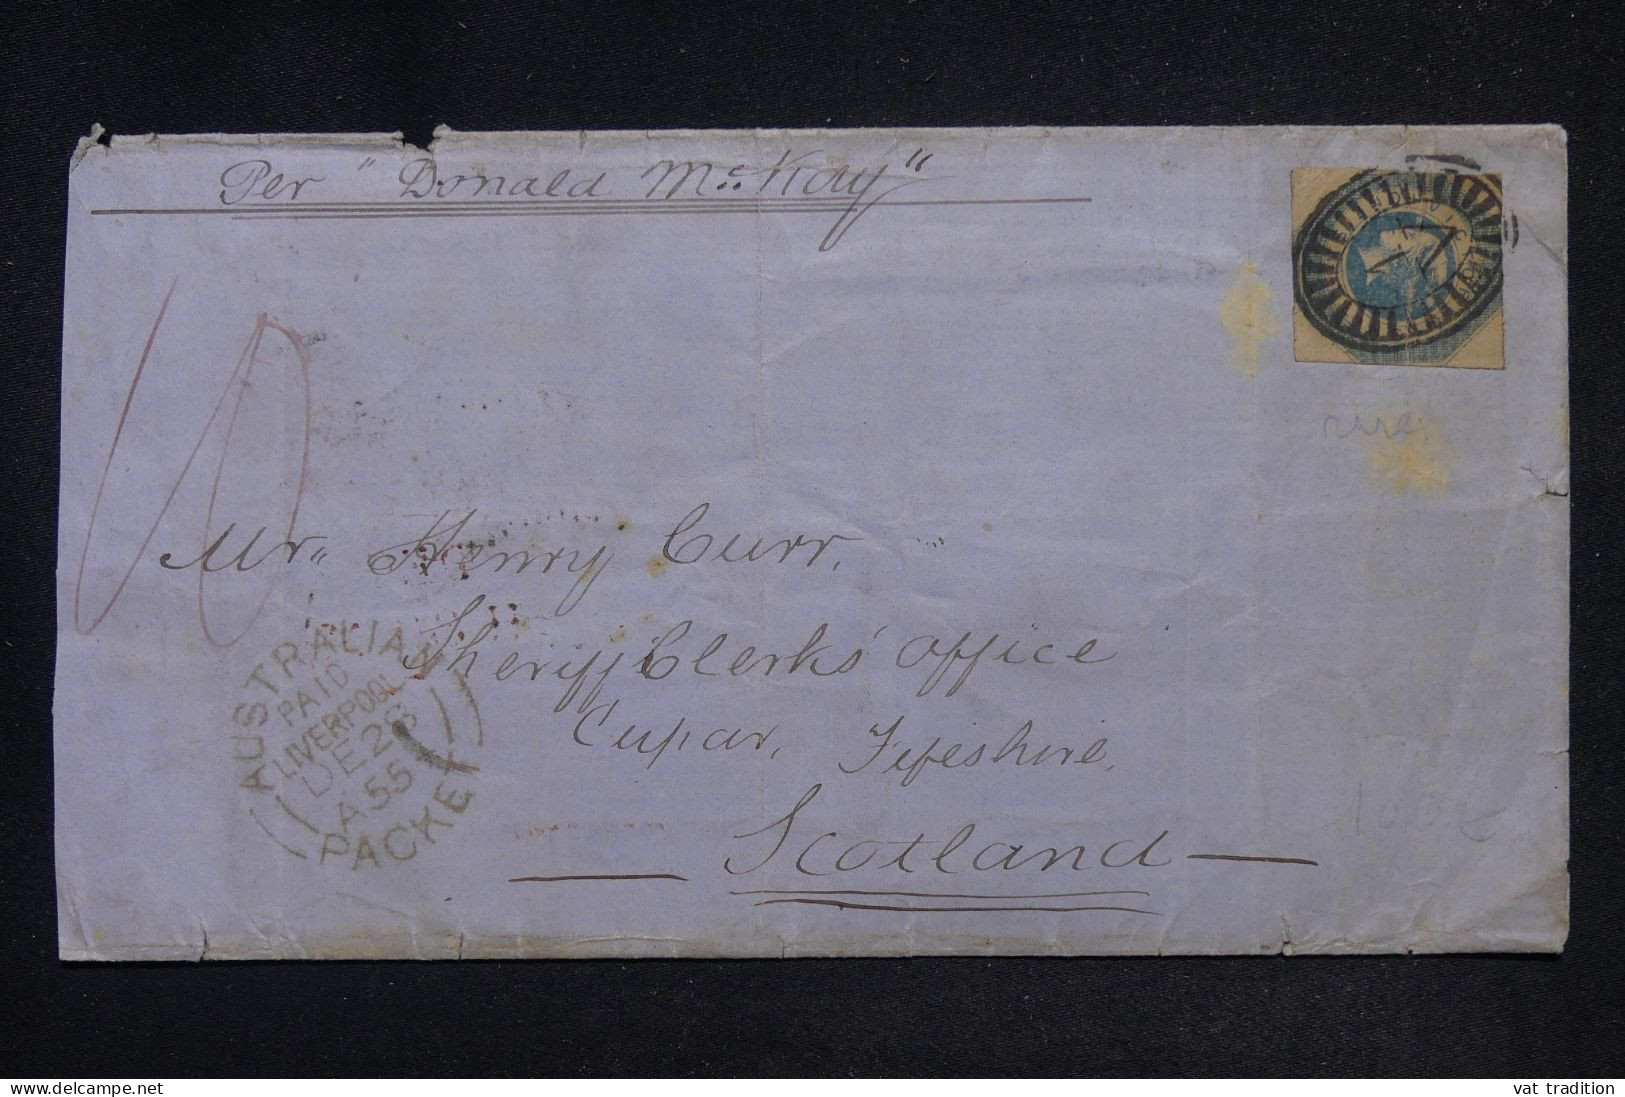 Per "Donald McKay"
10
rare
Mr. Henry Curr,
Sheriff Clerks' Office
Cupar, Fifeshire,
Scotland
AUSTRALIAN
PAID
LIVERPOOL
DE 26
A 55
PACKET
100£
www.delcampe.net
vat_tradition